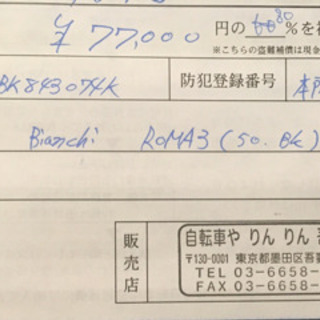 ¥77,000 円の 80%を
※こちらの盗難補償は現金
BK843074K 防犯登録番号
Bianchi ROMA3 (50. BK)
販売店
自転車や りん りん
〒130-0001 東京都墨田区吾妻
TEL 03-6658-
FAX 03-6658-